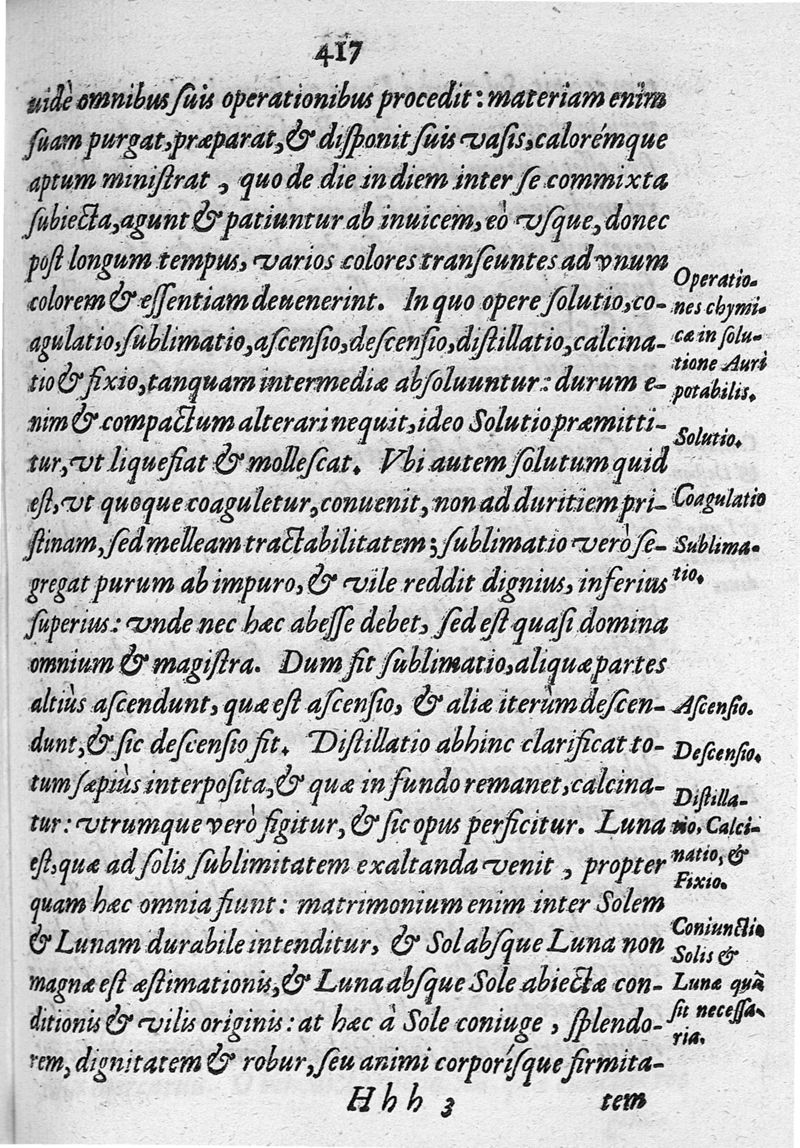 417
uidè omnibus ſuis operationibus procedit: materiam enim
ſuam purgat, præparat, & diſponit ſuis vaſis, calorémque
aptum miniſtrat, quo de die in diem inter ſe commixta
ſubiecta, agunt & patiuntur ab inuicem, eò vſque, donec
poſt longum tempus, varios colores tranſeuntes ad vnum
colorem & eſſentiam deuenerint. In quo opere ſolutio, co-
agulatio, ſublimatio, aſcenſio, deſcenſio, diſtillatio, calcina-
tio & fixio, tanquam intermediæ abſoluuntur: durum e-
nim & compactum alterari nequit, ideo Solutio præmitti-
tur, vt liquefiat & molleſcat. Vbi autem ſolutum quid
eſt, vt quoque coaguletur, conuenit, non ad duritiem pri-
ſtinam, ſed melleam tractabilitatem; ſublimatio verò ſe-
gregat purum ab impuro, & vile reddit dignius, inferius
ſuperius: vnde nec hæc abeſſe debet, ſed eſt quaſi domina
omnium & magiſtra. Dum fit ſublimatio, aliquæ partes
altiùs aſcendunt, quæ eſt aſcenſio, & aliæ iterùm deſcen-
dunt, & ſic deſcenſio fit. Diſtillatio abhinc clarificat to-
tum ſæpiùs interpoſita, & quæ in fundo remanet, calcina-
tur: vtrumque verò figitur, & ſic opus perficitur. Luna
eſt, quæ ad ſolis ſublimitatem exaltanda venit, propter
quam hæc omnia fiunt: matrimonium enim inter Solem
& Lunam durabile intenditur, & Sol abſque Luna non
magnæ eſt æſtimationis, & Luna abſque Sole abiectæ con-
ditionis & vilis originis: at hæc à Sole coniuge, ſplendo-
rem, dignitatem & robur, ſeu animi corporíſque firmita-
Hhh 3 tem
Operatio-
nes chymi-
cæ in ſolu-
tione Auri
potabilis.
Solutio.
Coagulatio
Sublima-
tio.
Aſcenſio.
Deſcenſio.
Diſtilla-
tio, Calci-
natio, &
Fixio.
Coniunctio
Solis &
Lunæ quã
ſit neceſſa-
ria.